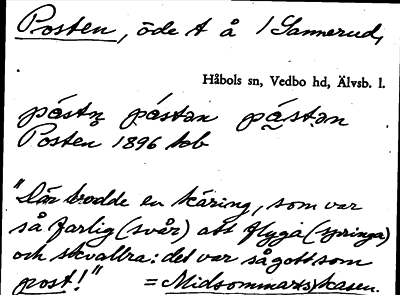 Posten, öde t å 1 Sannerud,
Håbols sn, Vedbo hd, Älvsb. l.
pástn̥ pástən pástən
Posten 1896 tob
"Där bodde en käring, som var
så farlig (svår) att flyga (springa)
och skvallra: det var så gott som
post!" = Midsommarskasen.